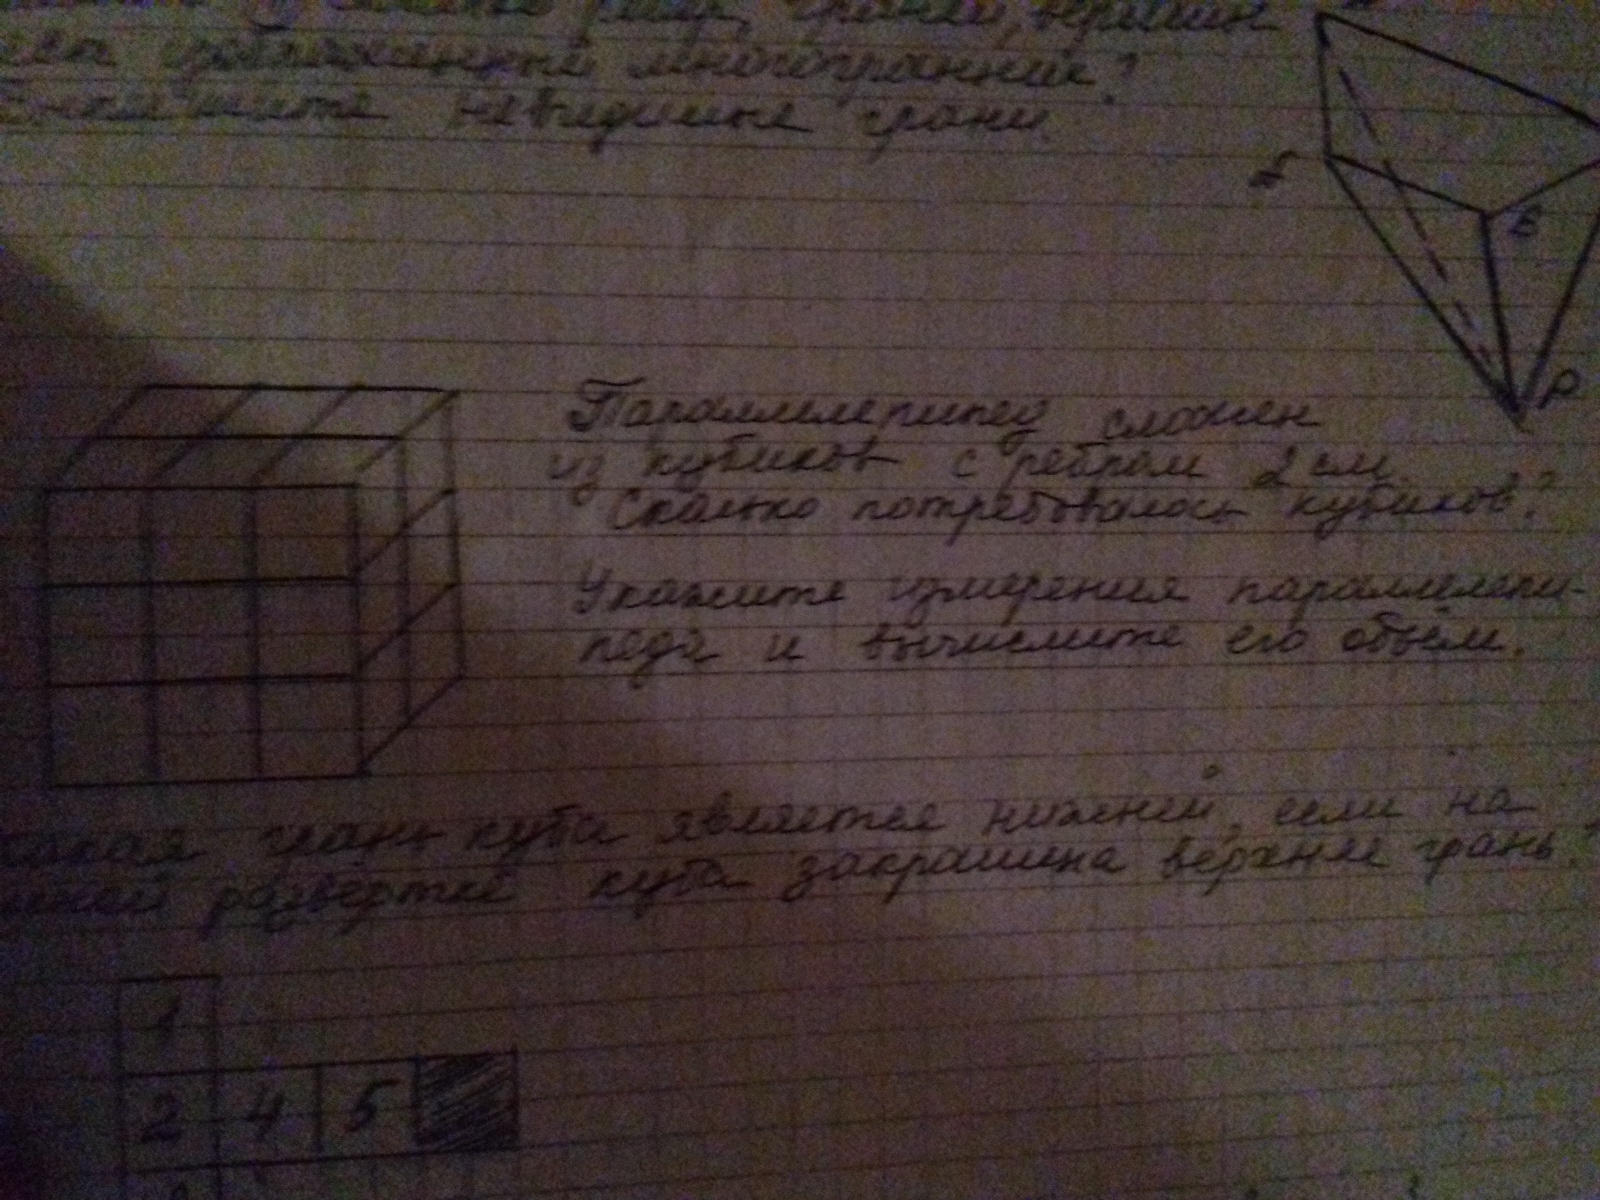 рёбер, граней, вершин
изображенный многогранник?
невидимые грани.
А
Е
Р
Параллелепипед сложен
из кубиков с ребром 2 см.
Сколько потребовалось кубиков?
Укажите измерения параллелепи-
педа и вычислите его объём.
Какая грань куба является нижней, если на
развёртке куба закрашена верхняя грань?
1
2 4 5
3